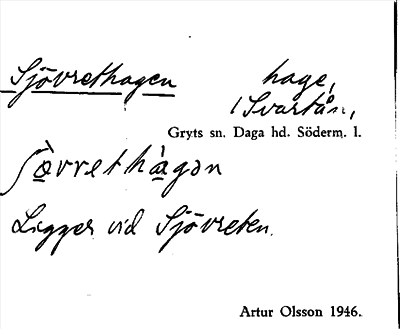 Sjövrethagen hage,
i Svartån,
Gryts sn. Daga hd. Söderm. l.
ʃö̀vrethàgən
Ligger vid Sjövreten.
Artur Olsson 1946.